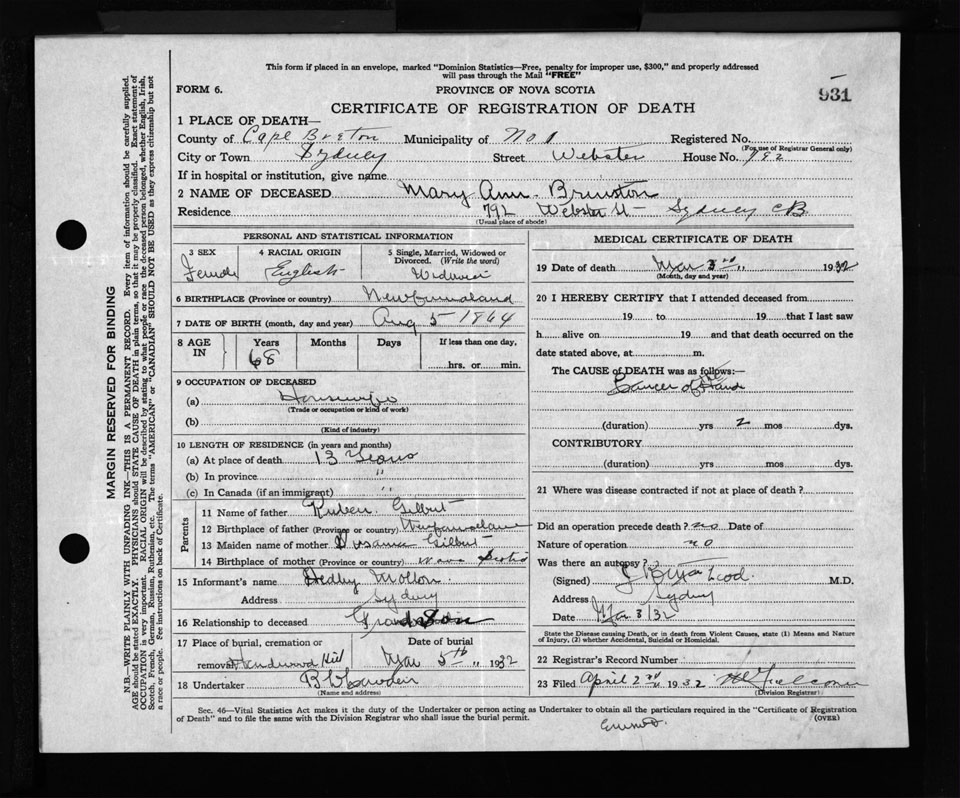 This form if placed in an envelope, marked "Dominion Statistics—Free, penalty for improper use, $300," and properly addressed
will pass through the Mail "FREE"
FORM 6.
PROVINCE OF NOVA SCOTIA
931
CERTIFICATE OF REGISTRATION OF DEATH
1 PLACE OF DEATH—
County of Cape Breton Municipality of No 1 Registered No.
(For use of Registrar General only)
City or Town Sydney Street Webster House No. 792
If in hospital or institution, give name
2 NAME OF DECEASED Mary Ann Brunston
Residence 792 Webster St Sydney CB
(Usual place of abode)
PERSONAL AND STATISTICAL INFORMATION
3 SEX Female
4 RACIAL ORIGIN English
5 Single, Married, Widowed or Divorced. (Write the word)
6 BIRTHPLACE (Province or country) Newfoundland
7 DATE OF BIRTH (month, day and year) Aug 5 1864
8 AGE IN Years Months Days If less than one day,
68 hrs. or min.
9 OCCUPATION OF DECEASED
(a) Housewife
(Trade or occupation or kind of work)
(b)
(Kind of industry)
10 LENGTH OF RESIDENCE (in years and months)
(a) At place of death 13 Years
(b) In province "
(c) In Canada (if an immigrant) "
Parents
11 Name of father Ruben Gilbert
12 Birthplace of father (Province or country) Newfoundland
13 Maiden name of mother Gilbert
14 Birthplace of mother (Province or country) Nova Scotia
15 Informant's name Hedley
Address Sydney
16 Relationship to deceased Grandson
17 Place of burial, cremation or Date of burial
removal Hardwood Hill Mar 5th " 1932
18 Undertaker
(Name and address)
MEDICAL CERTIFICATE OF DEATH
19 Date of death Mar 3rd " 1932
(Month, day and year)
20 I HEREBY CERTIFY that I attended deceased from
19 to 19 that I last saw
h alive on 19 and that death occurred on the
date stated above, at m.
The CAUSE of DEATH was as follows:—
Cancer of the
(duration) yrs 2 mos dys.
CONTRIBUTORY
(duration) yrs mos dys.
21 Where was disease contracted if not at place of death?
Did an operation precede death? no Date of
Nature of operation no
Was there an autopsy?
(Signed) M.D.
Address Sydney
Date Mar 3/32
State the Disease causing Death, or in death from Violent Causes, state (1) Means and Nature
of Injury, (2) whether Accidental, Suicidal or Homicidal.
22 Registrar's Record Number
23 Filed April 2nd 1932
(Division Registrar)
Sec. 46—Vital Statistics Act makes it the duty of the Undertaker or person acting as Undertaker to obtain all the particulars required in the "Certificate of Registration
of Death" and to file the same with the Division Registrar who shall issue the burial permit.
(OVER)
MARGIN RESERVED FOR BINDING
N.B.—WRITE PLAINLY WITH UNFADING INK—THIS IS A PERMANENT RECORD. Every item of information should be carefully supplied.
AGE should be stated EXACTLY. PHYSICIANS should STATE CAUSE OF DEATH in plain terms, so that it may be properly classified. Exact statement of
OCCUPATION is very important. RACIAL ORIGIN will be described by stating to what people or race the deceased person belonged, whether English, Irish,
Scotch, French, German, Russian, Ruthenian, etc. The terms "AMERICAN" or "CANADIAN" SHOULD NOT BE USED as they express citizenship but not
a race or people. See instructions on back of Certificate.